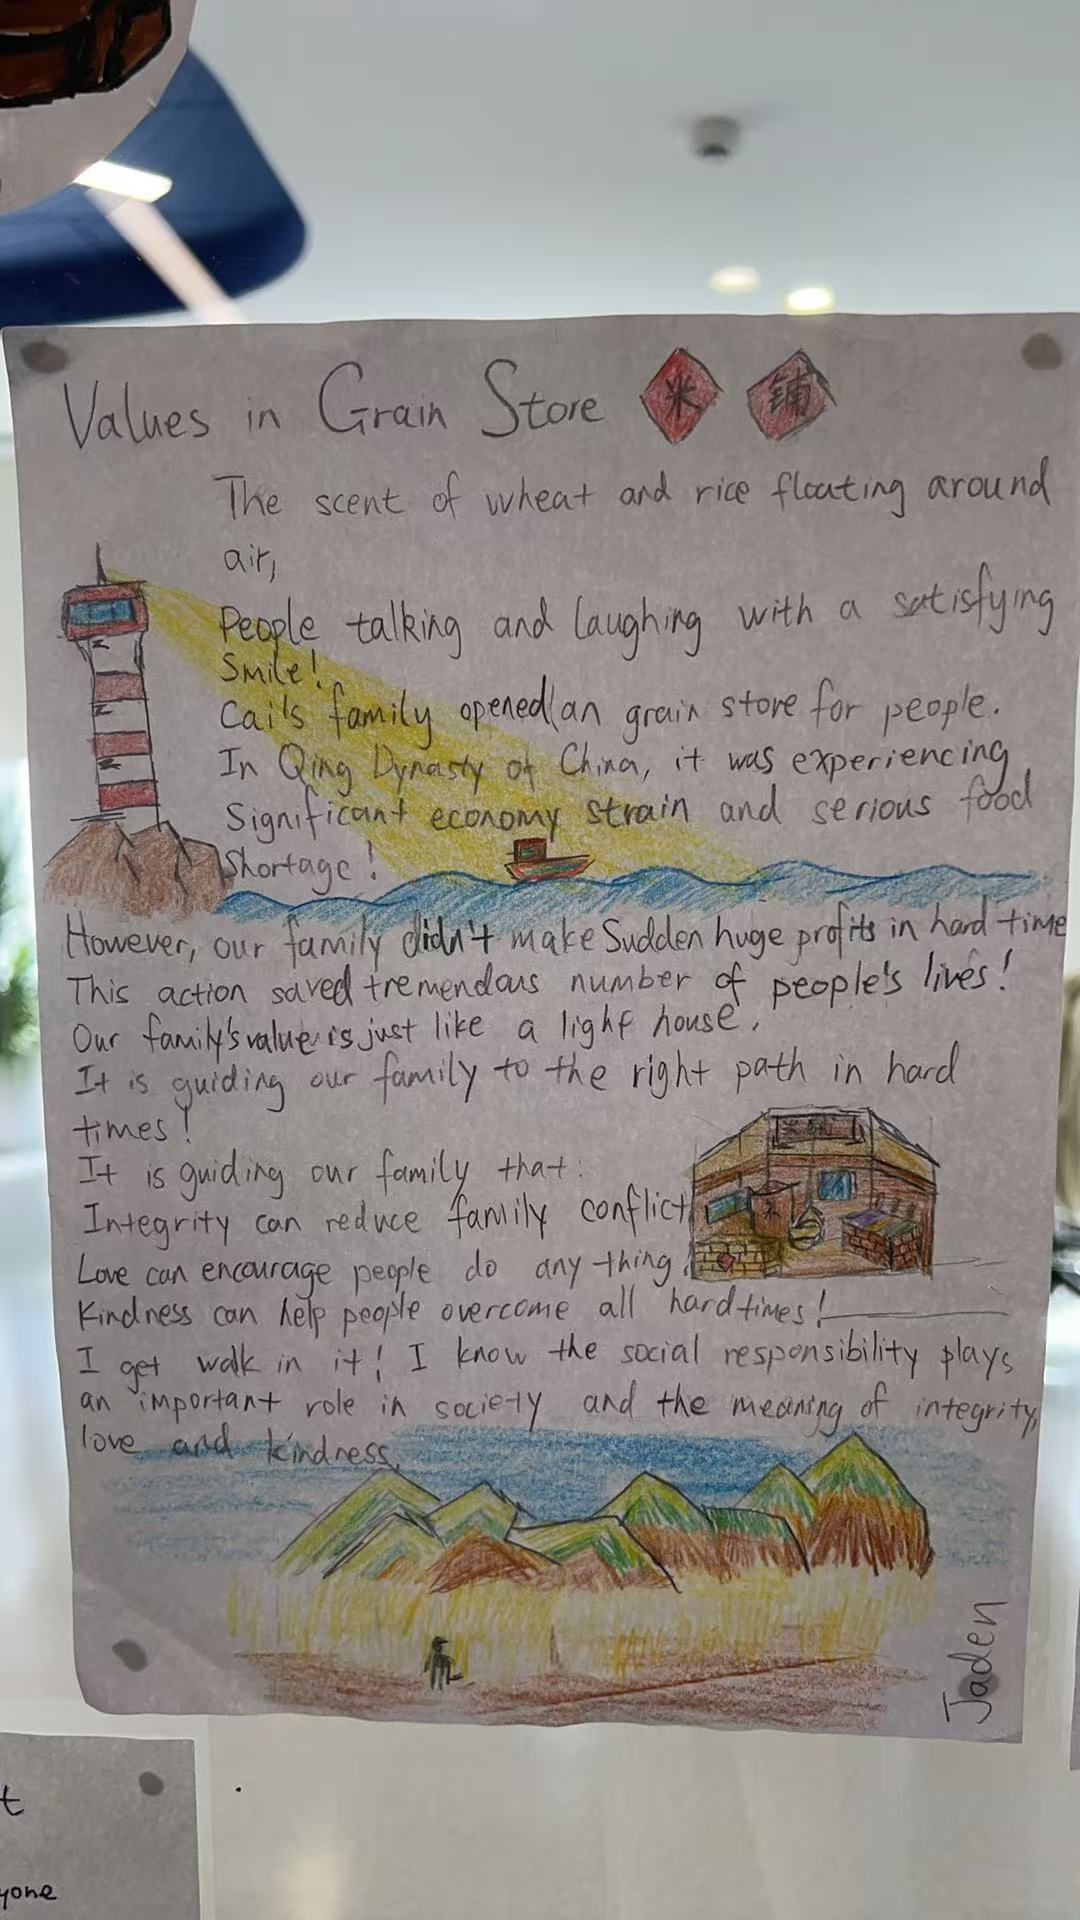 Values in Grain Store 米 铺
The scent of wheat and rice floating around
air,
People talking and laughing with a satisfying
Smile!
Cai's family opened an grain store for people.
In Qing Dynasty of China, it was experiencing
Significant economy strain and serious food
Shortage!
However, our family didn't make Sudden huge profits in hard time
This action saved tremendous number of people's lives!
Our family's value is just like a light house.
It is guiding our family to the right path in hard
times!
It is guiding our family that:
Integrity can reduce family conflict
Love can encourage people do any thing!
Kindness can help people overcome all hard times!
I get walk in it! I know the social responsibility plays
an important role in society and the meaning of integrity,
love and kindness.
Jaden
t
yone